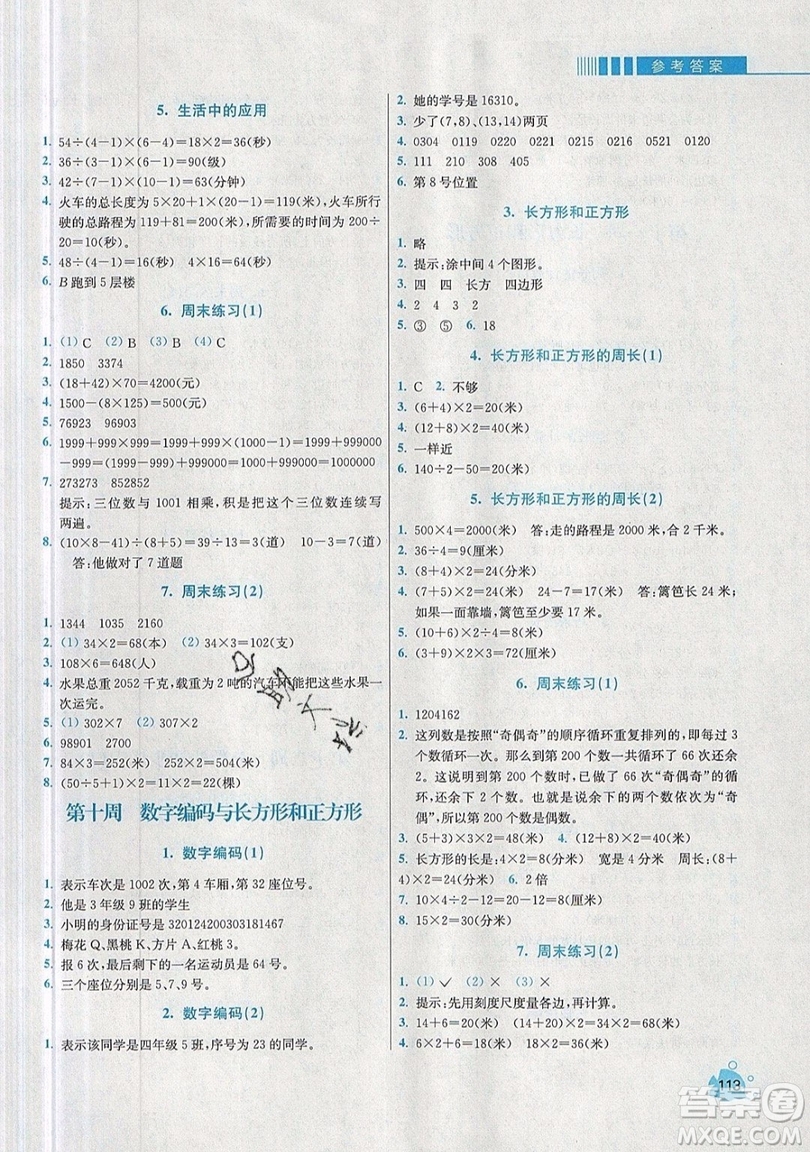 参考答案
5. 生活中的应用
1. 54÷(4－1)×(6－4)=18×2=36(秒)
2. 36÷(3－1)×(6－1)=90(级)
3. 42÷(7－1)×(10－1)=63(分钟)
4. 火车的总长度为5×20+1×(20－1)=119(米),火车所行
驶的总路程为119+81=200(米),所需要的时间为200÷
20=10(秒)。
5. 48÷(4－1)=16(米) 16×(6－1)=80(米)
6. B跑到5层楼
6. 周末练习(1)
1. (1) C (2) B (3) B (4) C
2. 1850 3374
3. (18+42)×70=4200(元)
4. 1500－(8×125)=500(元)
5. 76923 96903
6. 1999+999×999=1999+999×(1000－1)=1999+999000
－999=(1999－999)+999000=1000+999000=1000000
7. 273273 852852
提示:三位数与1001相乘,积是把这个三位数连续写
两遍。
8. (10×8－41)÷(8+5)=39÷13=3(道) 10－3=7(道)
答:他做对了7道题
7. 周末练习(2)
1. 1344 1035 2160
2. (1) 34×2=68(本) (2) 34×3=102(支)
3. 108×6=648(人)
4. 水果总重2052千克,载重为2吨的汽车不能把这些水果一
次运完。
5. (1) 302×7 (2) 307×2
6. 98901 2700
7. 84×5÷(5－1)+84=189
8. (50÷5+1)×2=11×2=22(棵)
第十周 数字编码与长方形和正方形
1. 数字编码(1)
1. 表示车次是1002次,第4车厢,第32座位号。
2. 他是3年级9班的学生
3. 小明的身份证号是320124200303181467
4. 梅花Q、黑桃K、方片A、红桃3。
5. 报6次,最后剩下的一名运动员是64号。
6. 三个座位分别是5、7、9号。
2. 数字编码(2)
1. 表示该同学是四年级5班,序号为23的同学。
2. 她的学号是16310。
3. 少了(7,8)、(13,14)两页
4. 0304 0119 0220 0221 0215 0216 0521 0120
5. 111 210 308 405
6. 第8号位置
3. 长方形和正方形
1. 略
2. 提示:涂中间4个图形。
3. 四 四 长方 四边形
4. 2 4 3 2
5. ③ ⑤ 6. 18
4. 长方形和正方形的周长(1)
1. C 2. 不够
3. (6+4)×2=20(米)
4. (12+8)×2=40(米)
5. 一样近
6. 140÷2－50=20(米)
5. 长方形和正方形的周长(2)
1. 500×4=2000(米) 答:走的路程是2000米,合2千米。
2. 36÷4=9(厘米)
3. (8+4)×2=24(分米)
4. (7+5)×2=24(米) 24－7=17(米) 答:篱笆长24米;
如果一面靠墙,篱笆至少要17米。
5. (10+6)×2÷4=8(厘米)
6. (3+9)×2=24(米)
6. 周末练习(1)
1. 1204162
2. 这列数是按照“奇偶奇”的顺序循环重复排列的,即每3
个数循环一次。那么前200个数一共循环了66次还余
2。这说明到第200个数时,已做了66次“奇偶奇”的循
环,还余2。也就是说余下的两个数依次应该为“奇
偶”,所以第200个数是偶数。
3. (5+3)×2×3=48(米) 4. (12+8)×2=40(米)
5. 长方形的长是:4×2=8(米) 宽是4米 周长:(8+
4)×2=24(米) 6. 2倍
7. 10×4÷2－12=20－12=8(厘米)
8. 15×2=30(分米)
7. 周末练习(2)
1. (1) ✓ (2) × (3) ×
2. 提示:先用刻度尺度量各边,再计算。
3. 14+6=20(米) (14+20)×2=34×2=68(米)
4. 6×2+6=18(米) 18×2=36(米)
113
答案圈
MXQE.COM